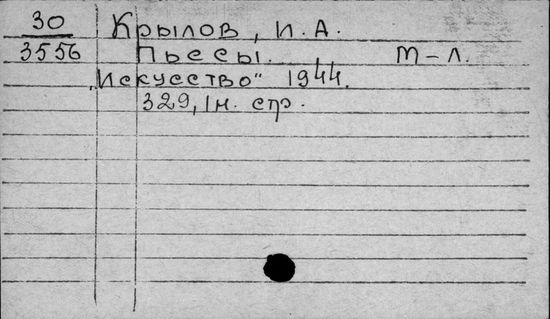 30 Крылов, И. А.
3556 Пьесы. М-Л.
„Искусство" 1944.
329, 1 н. стр.